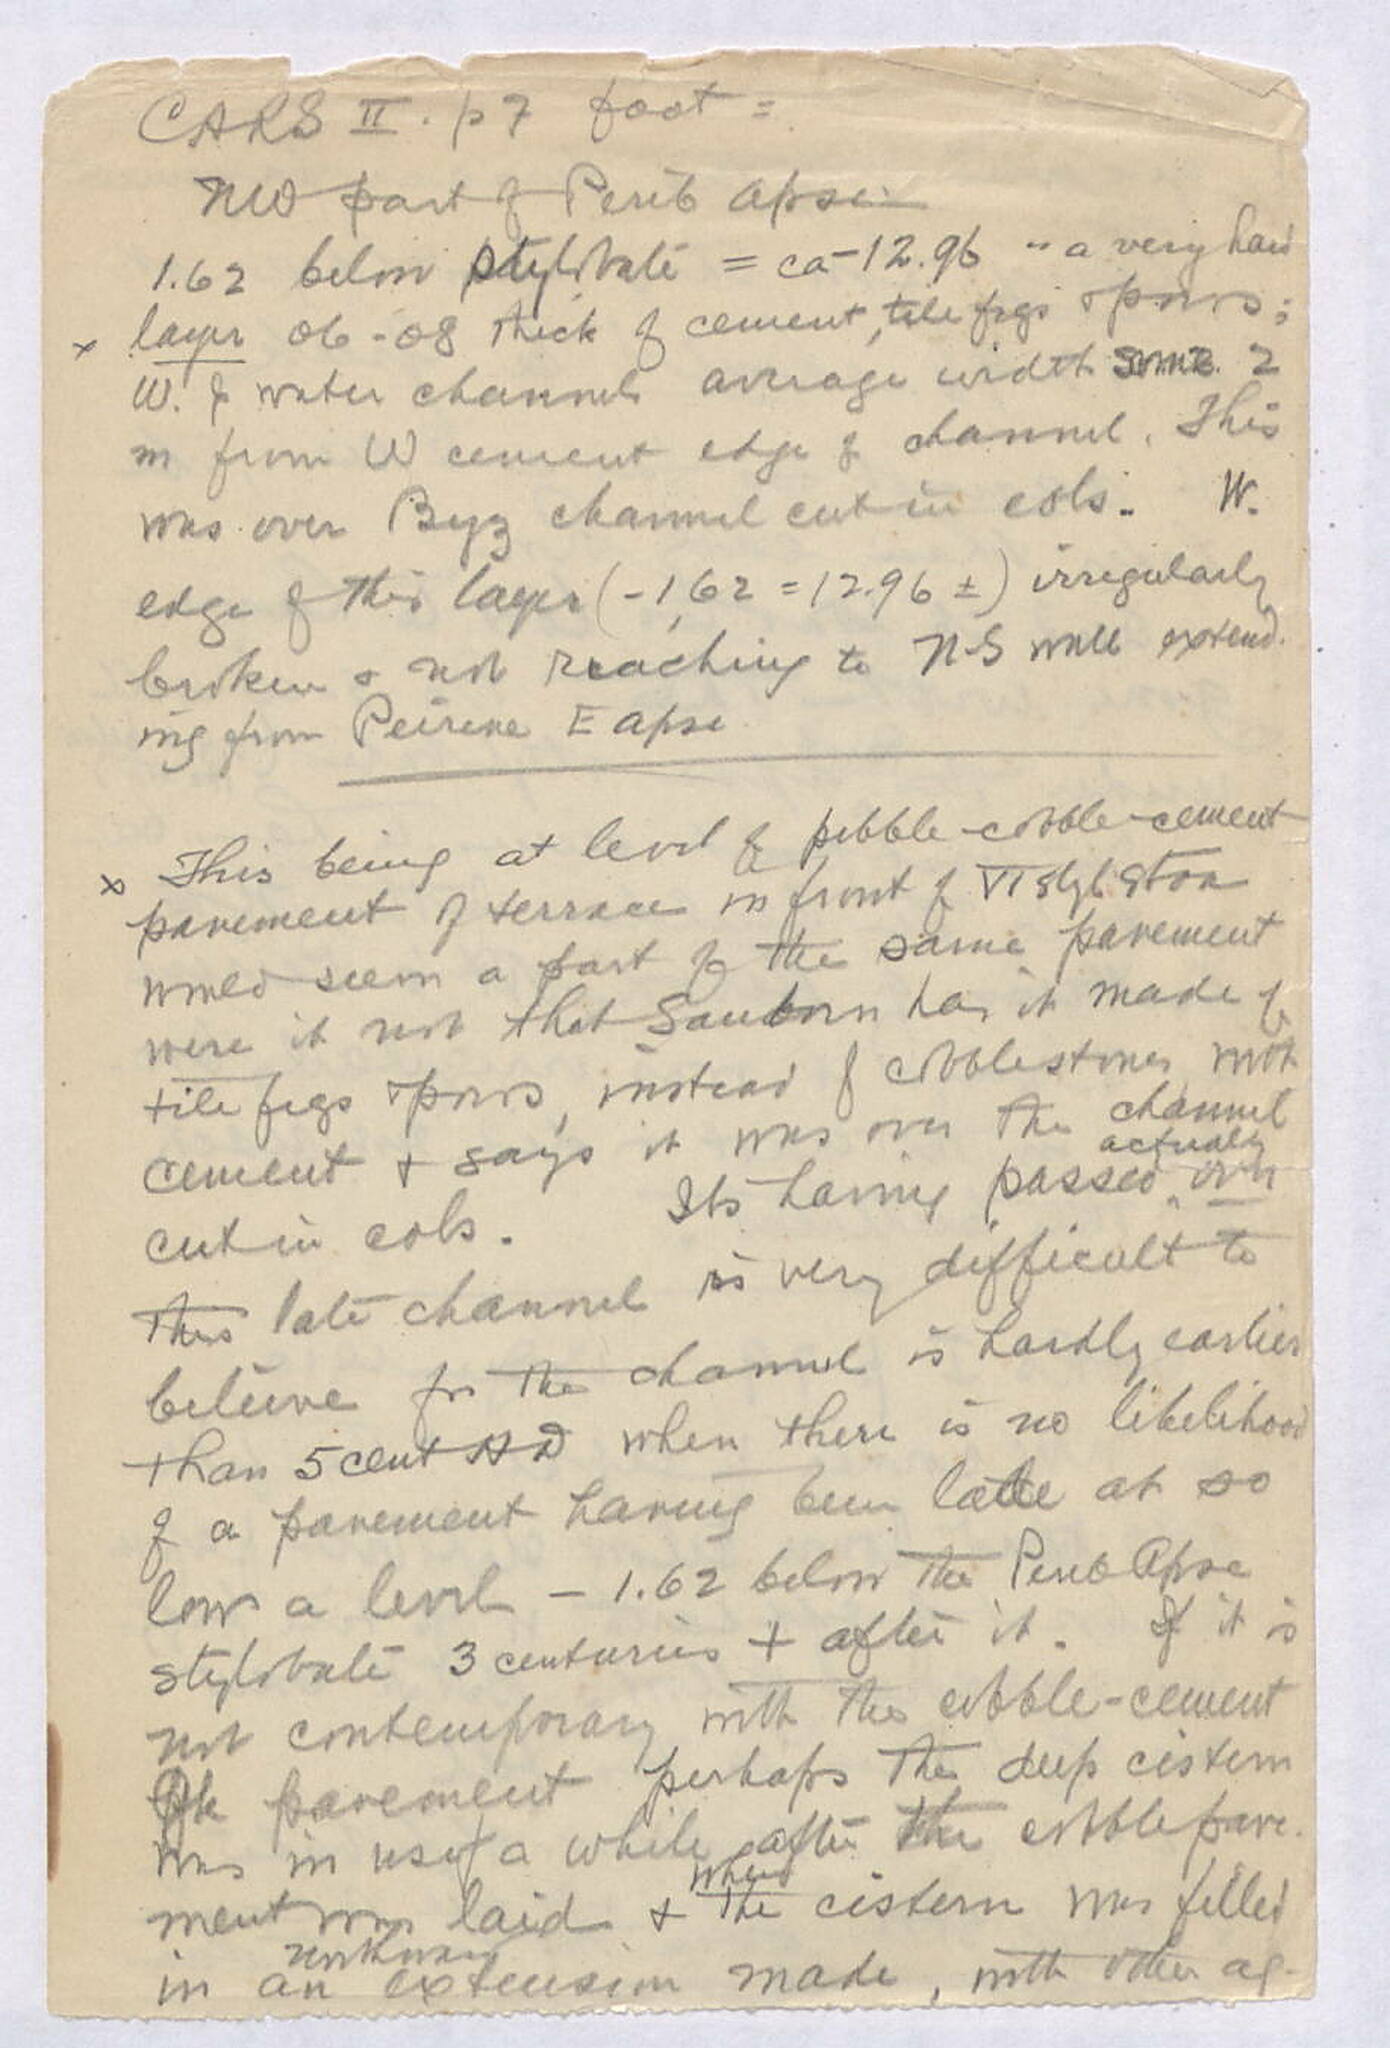 CARS II. p 7 foot =
NW part of Perib apse
1.62 below stylobate = ca -12.96 " a very hard
x layer 06-08 thick of cement, tile frgs & poros;
W. of water channel average width some 2
m from W cement edge of channel. This
was over Byz channel cut in cols. W.
edge of this layer (-1.62 = 12.96 ±) irregularly
broken & not reaching to N-S wall extend-
ing from Peirene E apse
x This being at level of pebble-cobble-cement
pavement of terrace in front of Stoa
would seem a part of the same pavement
were it not that Sanborn has it made of
tile frgs & poros, instead of cobblestones with
cement & says it was over the channel
cut in cols. Its having passed actually over
this late channel is very difficult to
believe for the channel is hardly earlier
than 5 cent AD when there is no likelihood
of a pavement having been at so
low a level - 1.62 below the Perib Apse
stylobate 3 centuries + after it. If it is
not contemporary with the cobble-cement
pavement perhaps the deep cistern
was in use a while after the cobble pave-
ment was laid & when the cistern was filled
in an northward extension made, with other ag-